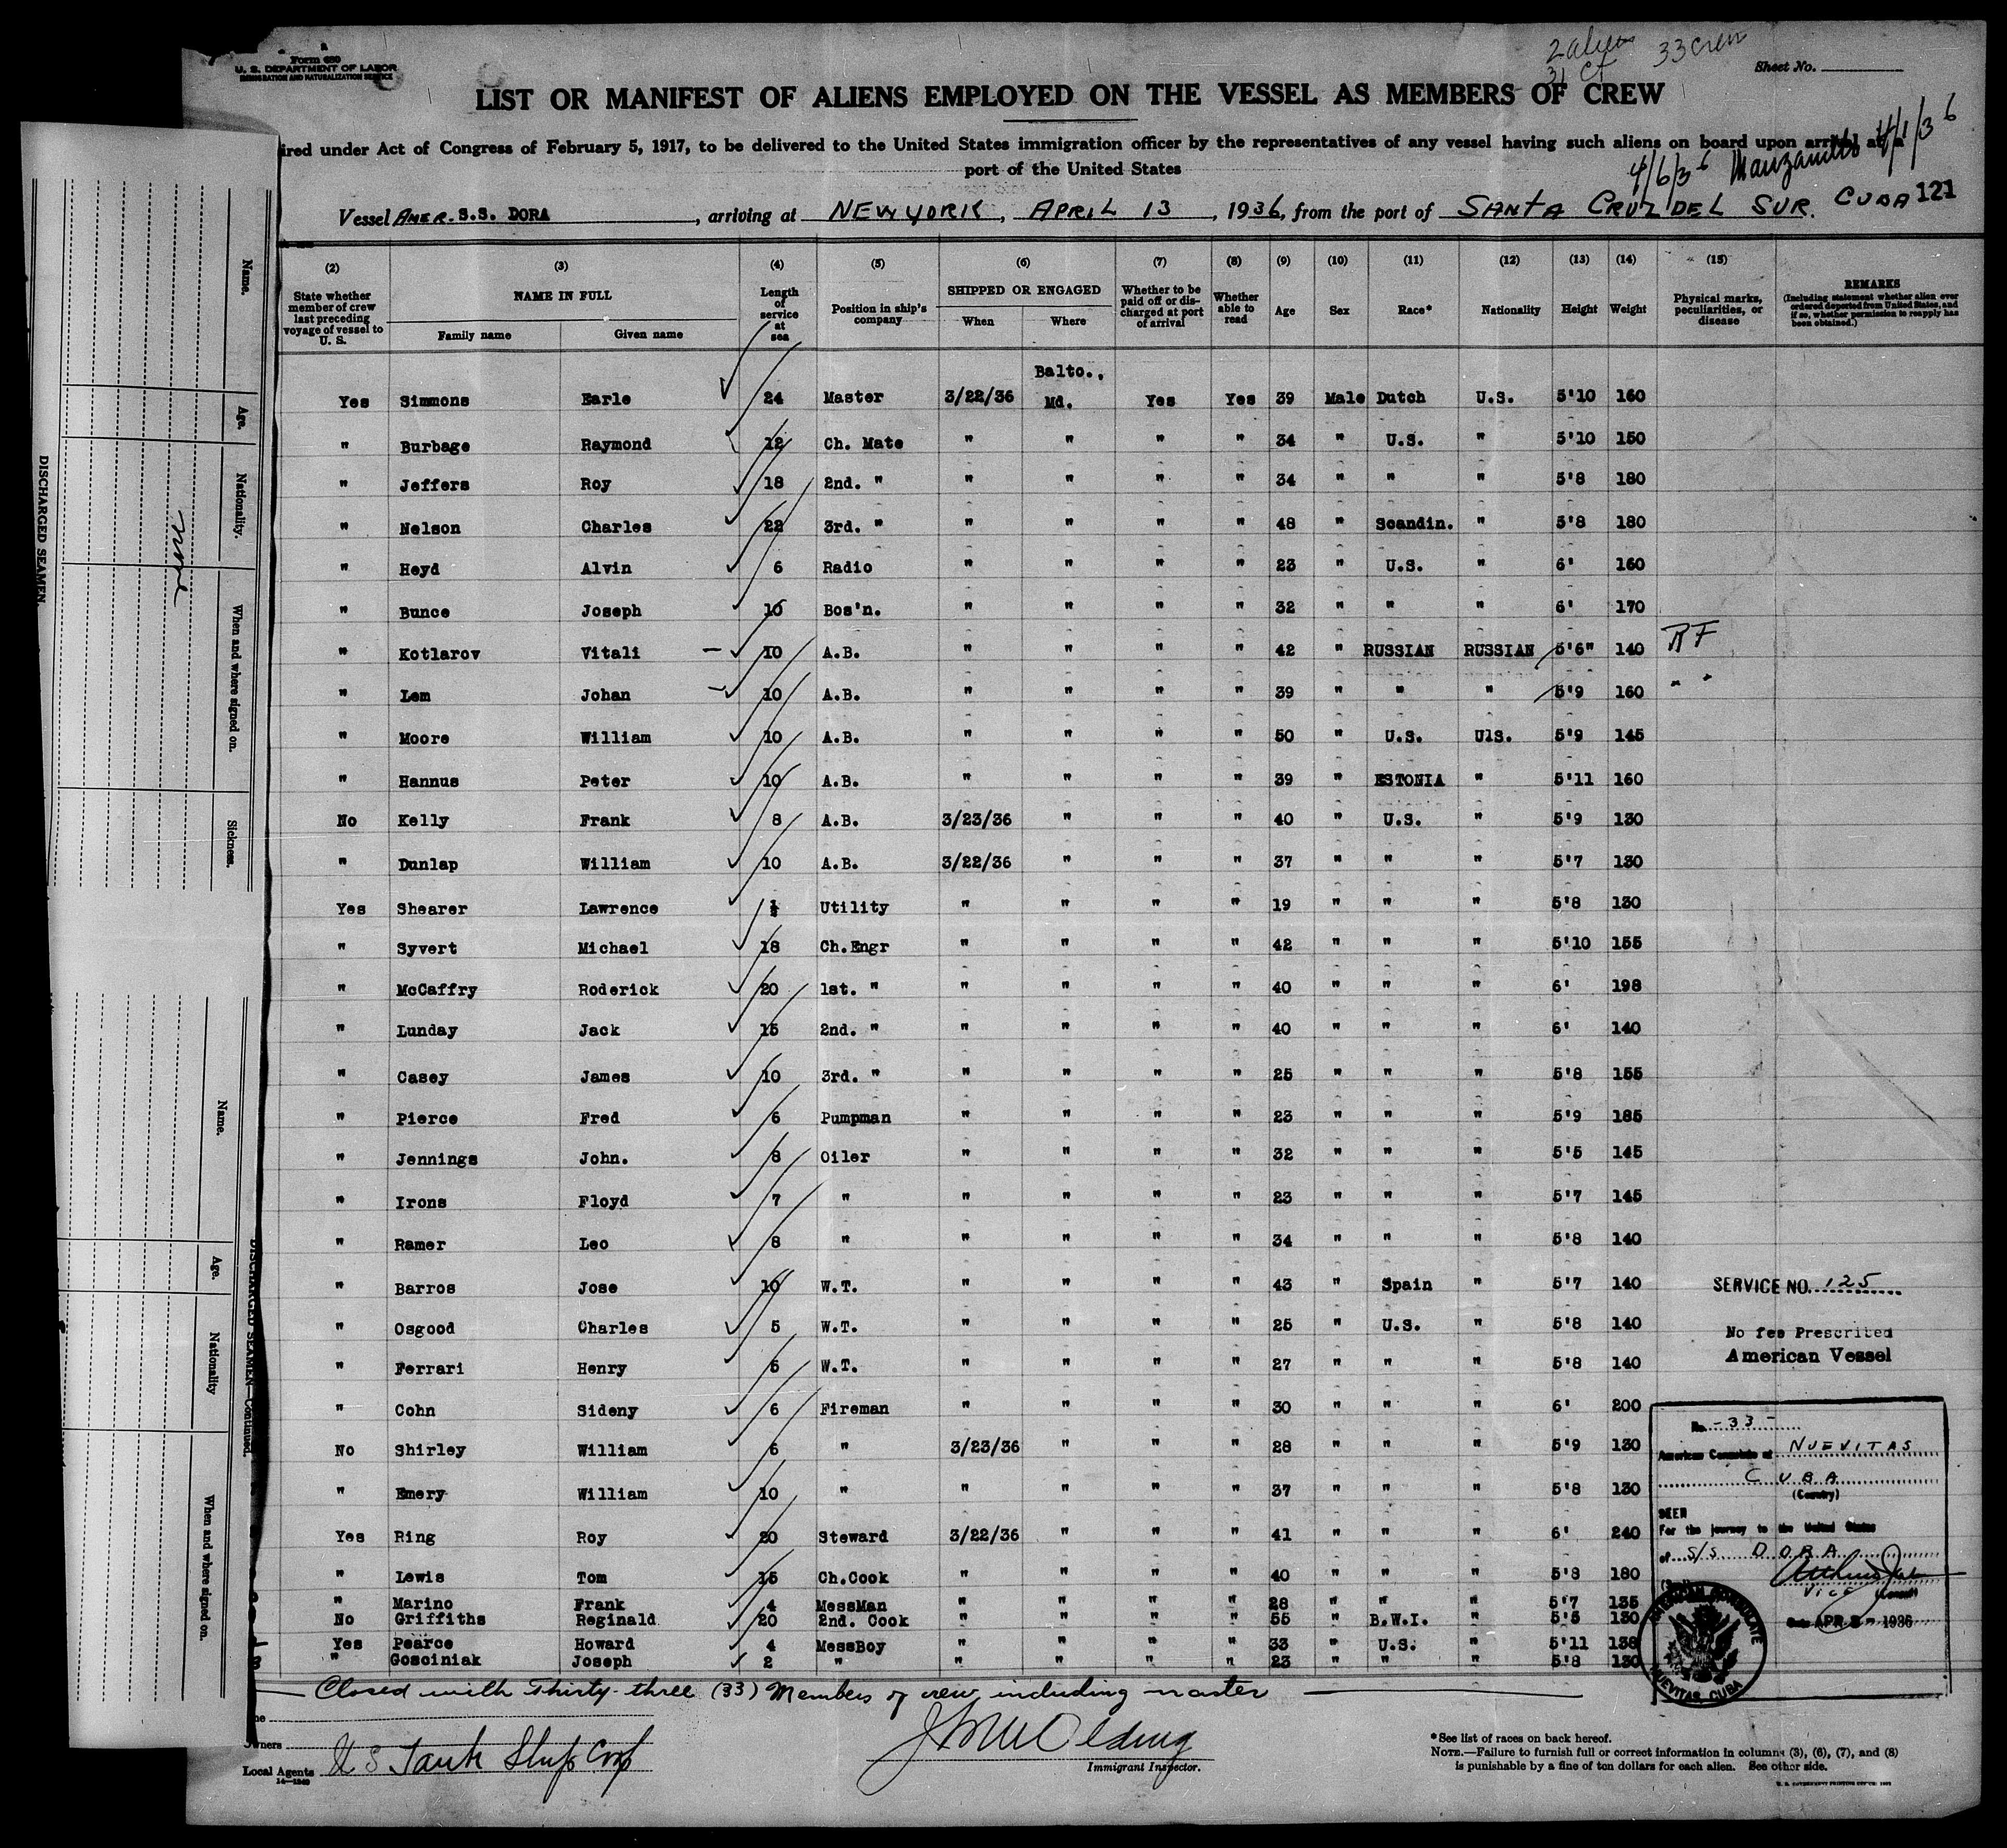 Form 680
U. S. DEPARTMENT OF LABOR
IMMIGRATION AND NATURALIZATION SERVICE
2 alien 33 crew
31 Ct
Sheet No.
LIST OR MANIFEST OF ALIENS EMPLOYED ON THE VESSEL AS MEMBERS OF CREW
ired under Act of Congress of February 5, 1917, to be delivered to the United States immigration officer by the representatives of any vessel having such aliens on board upon arrival at a
port of the United States
4/6/36 Manzanillo 4/1/36
Vessel AMER. S.S. DORA, arriving at NEW YORK, APRIL 13, 1936, from the port of SANTA CRUZ DEL SUR. CUBA 121
(2) (3) (4) (5) (6) (7) (8) (9) (10) (11) (12) (13) (14) (15)
State whether member of crew last preceding voyage of vessel to U. S. NAME IN FULL Family name Given name Length of service at sea Position in ship's company SHIPPED OR ENGAGED When Where Whether to be paid off or discharged at port of arrival Whether able to read Age Sex Race* Nationality Height Weight Physical marks, peculiarities, or disease REMARKS (Including statement whether alien ever ordered deported from United States, and if so, whether permission to reapply has been obtained.)
Yes Simmons Earle 24 Master 3/22/36 Balto., Md. Yes Yes 39 Male Dutch U.S. 5'10 160
" Burbage Raymond 12 Ch. Mate " " " " 34 " U.S. " 5'10 150
" Jeffers Roy 18 2nd. " " " " " 34 " " " 5'8 180
" Nelson Charles 22 3rd. " " " " " 48 " Scandin. " 5'8 180
" Heyd Alvin 6 Radio " " " " 23 " U.S. " 6' 160
" Bunce Joseph 10 Bos'n. " " " " 32 " " " 6' 170
" Kotlarov Vitali 10 A.B. " " " " 42 " RUSSIAN RUSSIAN 5'6" 140 RF
" Lem Johan 10 A.B. " " " " 39 " " " 5'9 160 " "
" Moore William 10 A.B. " " " " 50 " U.S. UlS. 5'9 145
" Hannus Peter 10 A.B. " " " " 39 " ESTONIA " 5'11 160
No Kelly Frank 8 A.B. 3/23/36 " " " 40 " U.S. " 5'9 130
" Dunlap William 10 A.B. 3/22/36 " " " 37 " " " 5'7 130
Yes Shearer Lawrence Utility " " " " 19 " " " 5'8 130
" Syvert Michael 18 Ch.Engr " " " " 42 " " " 5'10 155
" McCaffry Roderick 20 1st. " " " " " 40 " " " 6' 198
" Lunday Jack 15 2nd. " " " " " 40 " " " 6' 140
" Casey James 10 3rd. " " " " " 25 " " " 5'8 155
" Pierce Fred 6 Pumpman " " " " 23 " " " 5'9 185
" Jennings John. 8 Oiler " " " " 32 " " " 5'5 145
" Irons Floyd 7 " " " " " 23 " " " 5'7 145
" Ramer Leo 8 " " " " " 34 " " " 5'8 140
" Barros Jose 10 W.T. " " " " 43 " Spain " 5'7 140
SERVICE NO. 125
" Osgood Charles 5 W.T. " " " " 25 " U.S. " 5'8 140
No fee Prescribed
American Vessel
" Ferrari Henry 5 W.T. " " " " 27 " " " 5'8 140
" Cohn Sideny 6 Fireman " " " " 30 " " " 6' 200
No Shirley William 6 " 3/23/36 " " " 28 " " " 5'9 130
" Emery William 10 " " " " " 37 " " " 5'8 130
Yes Ring Roy 20 Steward 3/22/36 " " " 41 " " " 6' 240
" Lewis Tom 15 Ch.Cook " " " " 40 " " " 5'8 180
" Marino Frank 4 MessMan " " " " 28 " " " 5'7 135
No Griffiths Reginald 20 2nd. Cook " " " " 55 " B.W.I. " 5'5 130
Yes Pearce Howard 4 MessBoy " " " " 33 " U.S. " 5'11 138
" Gosciniak Joseph 2 " " " " " 23 " " " 5'8 130
No. -33-
American Consulate at NUEVITAS
CUBA
(Country)
SEEN
For the journey to the United States
of S/S DORA
Vice Consul
Date APR 8 - 1936
AMERICAN CONSULATE
NUEVITAS, CUBA
Closed with Thirty-three (33) Members of crew including master
Owners
Local Agents U S Tank Ship Corp
14—1240
Immigrant Inspector.
*See list of races on back hereof.
NOTE.—Failure to furnish full or correct information in columns (3), (6), (7), and (8)
is punishable by a fine of ten dollars for each alien. See other side.
DISCHARGED SEAMEN.
Name. Age. Nationality. When and where signed on. Sickness.
DISCHARGED SEAMEN—Continued.
Name. Age. Nationality When and where signed on.